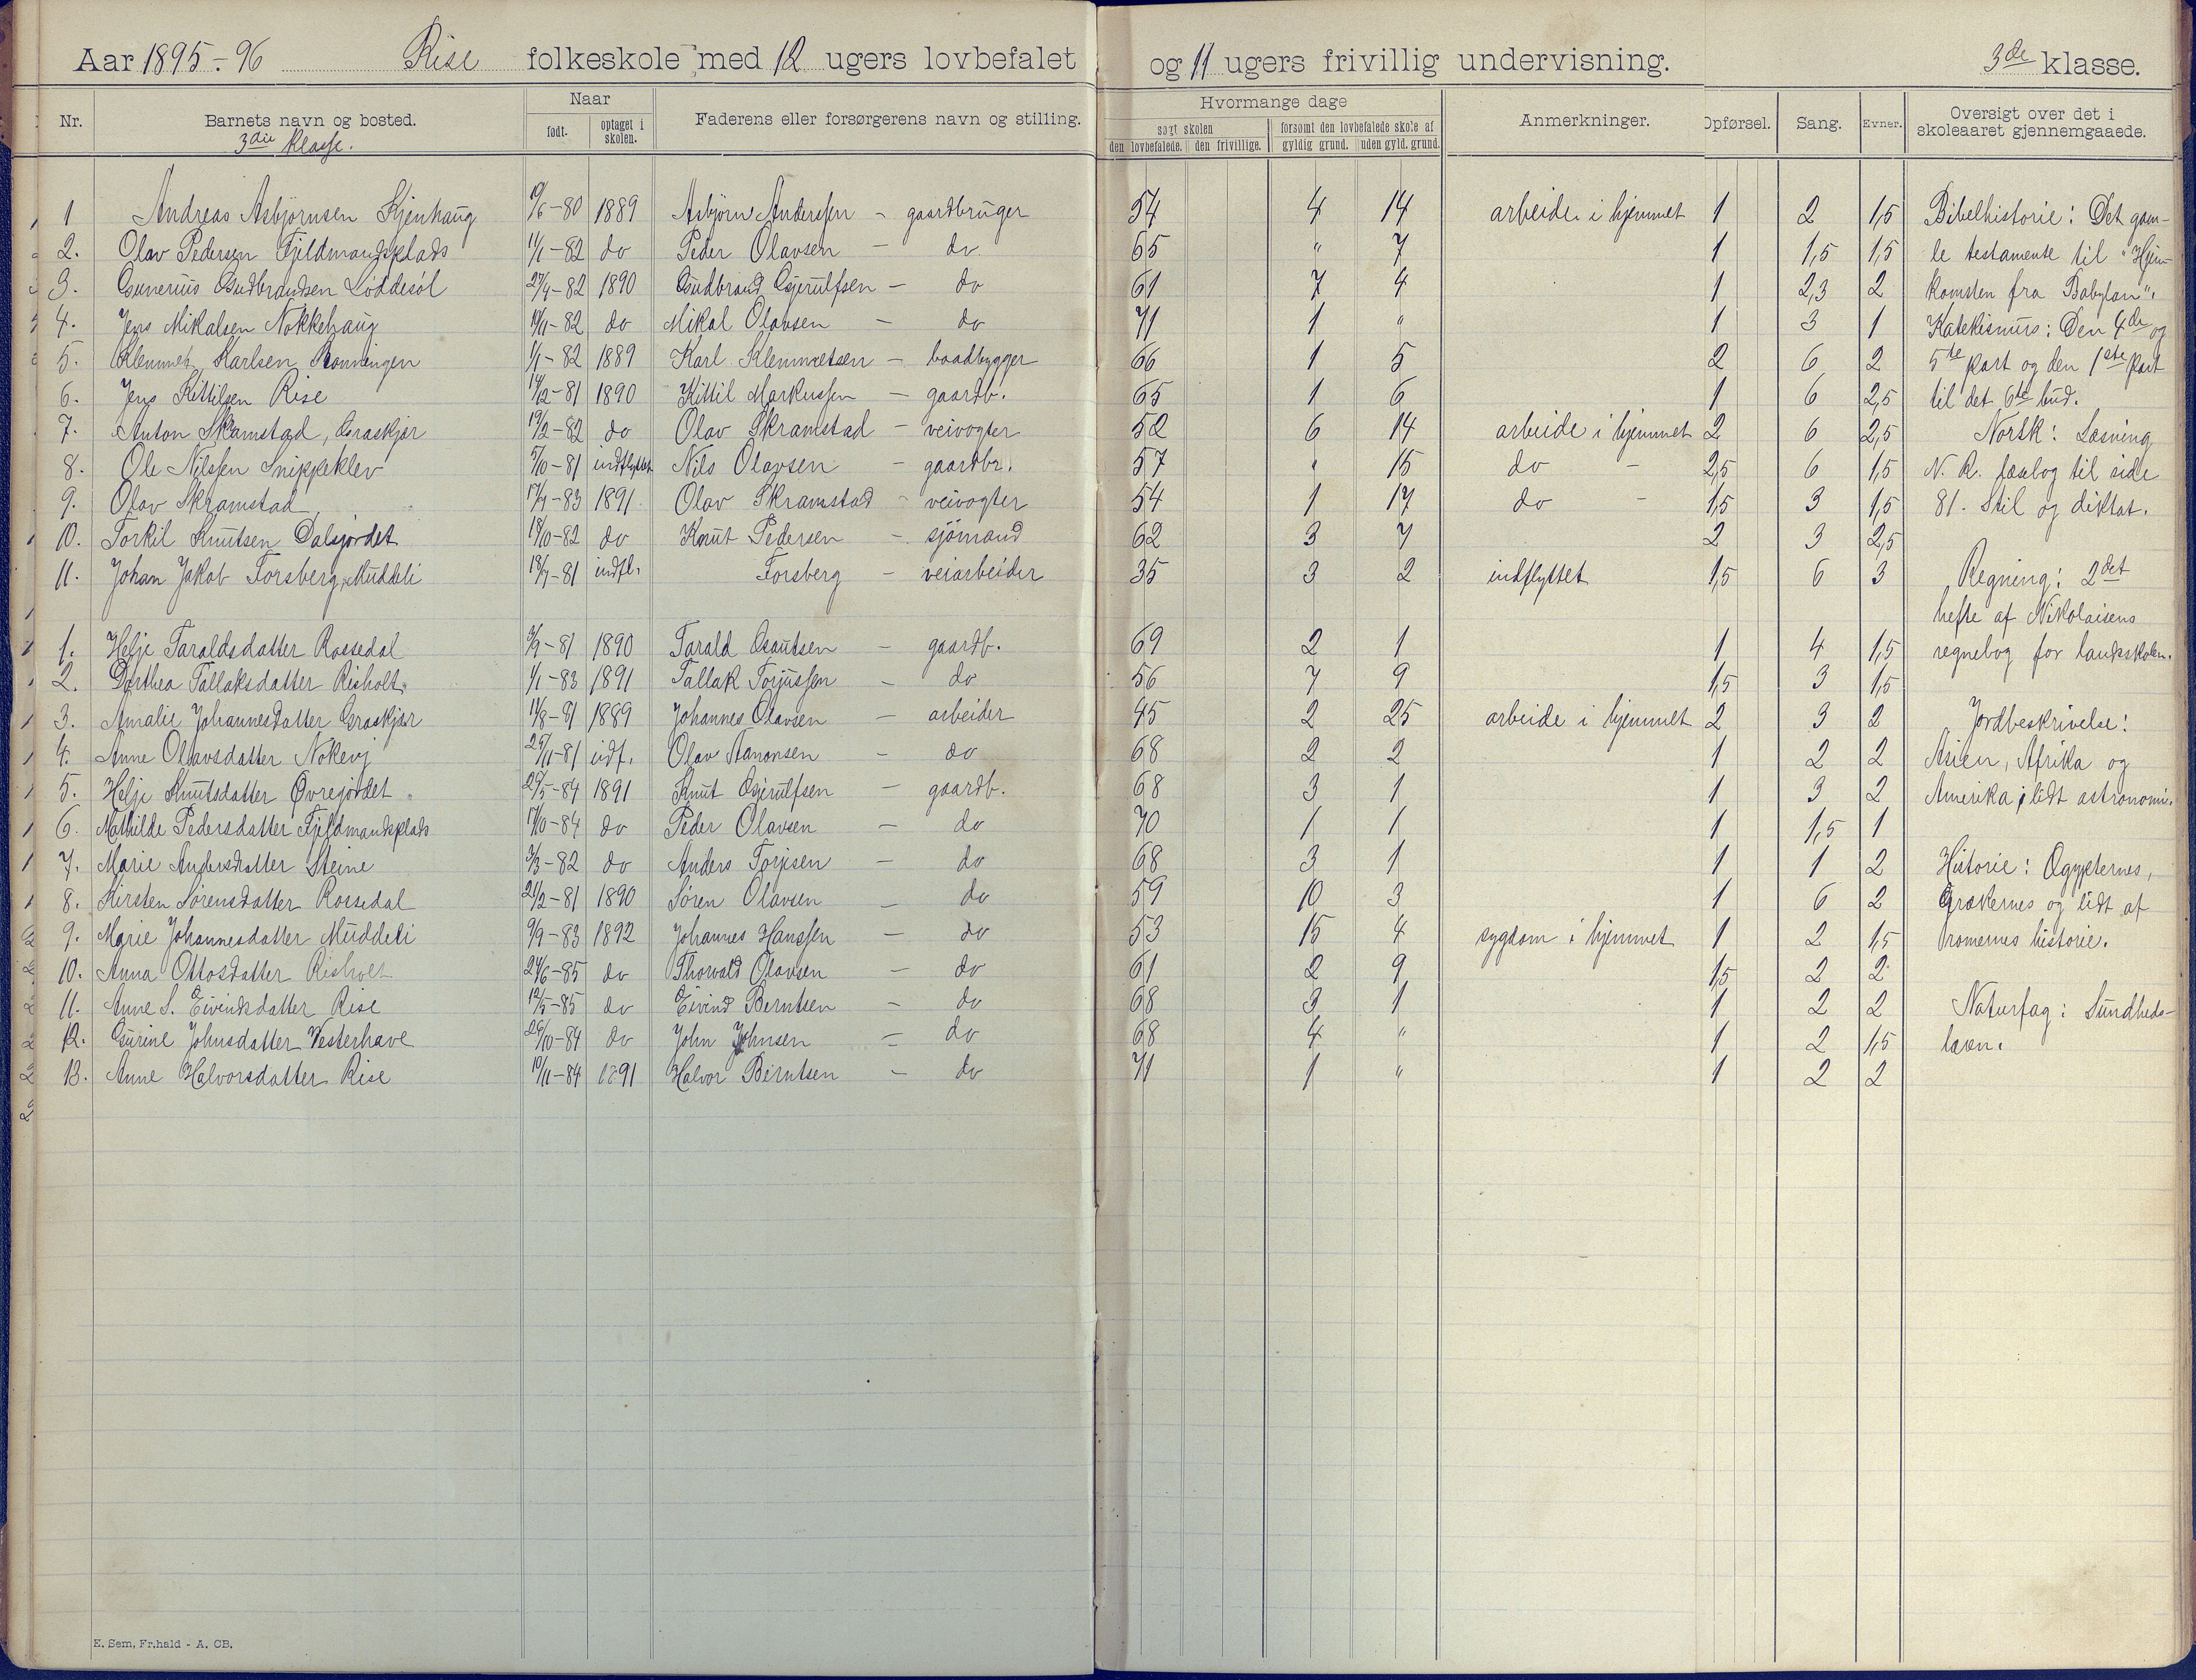 Aar 1895-96 Rise folkeskole med 12 ugers lovbefalet og 11 ugers frivillig undervisning. 3de klasse.
Nr. Barnets navn og bosted. Naar født. optaget i skolen. Faderens eller forsørgerens navn og stilling. Hvormange dage søgt skolen den lovbefalede. den frivillige. forsømt den lovbefalede skole af gyldig grund. uden gyld. grund. Anmerkninger. Opførsel. Sang. Evner. Oversigt over det i skoleaaret gjennemgaaede.
3die klasse.
1 Andreas Asbjørnsen Kjenhaug 19/6-80 1889 Asbjørn Anderssen - gaardbruger 54 4 14 arbeide i hjemmet 1 2 1,5 Bibelhistorie: Det gam-
2. Olav Pedersen Fjeldmandsplads 11/1-82 do Peder Olavsen - do 65 " 7 1 1,5 1,5 le testamente til "Hjem-
3. Gunerius Gudbrandsen Løddesøl 27/4-82 1890 Gudbrand Gjerulfsen - do 61 7 4 1 2,3 2 komsten fra Babylon".
4. Jens Mikalsen Nokkehaug 14/11-82 do Mikal Olavsen - do 71 1 " 1 3 1 Katekismus: Den 4de og
5. Klemmet Karlsen Rønningen 1/1-82 1889 Karl Klemmetsen - baadbygger 66 1 5 2 6 2 5te part og den 1ste part
6. Jens Kittilsen Rise 14/12-81 1890 Kittil Markussen - gaardb. 65 1 6 1 6 2,5 til det 6te bud.
7. Anton Skramstad, Graskjær 19/2-82 do Olav Skramstad - veivogter 52 6 14 arbeide i hjemmet 2 6 2,5 Norsk: Læsning
8. Ole Nilssen Snippeklev 5/10-81 indflyttet Nils Olavsen - gaardbr. 57 " 15 do - 2,5 6 1,5 N. R. læsebog til side
9. Olav Skramstad 17/4-83 1891 Olav Skramstad - veivogter 54 1 17 do - 1,5 3 1,5 81. Stil og diktat.
10. Torkil Knutsen Dalsjordet 18/10-82 do Knut Pedersen - sjømand 62 3 7 2 3 2,5
11. Johan Jakob Forsberg, Muddeli 18/7-81 indfl. Forsberg - veiarbeider 35 3 2 indflyttet 1,5 6 3 Regning: 2det
hefte af Nikolaisens
1. Helje Taraldsdatter Rossedal 3/9-81 1890 Tarald Gautsen - gaardb. 69 2 1 1 4 1,5 regnebog for landsskolen.
2. Dorthea Tallaksdatter Risholt. 1/1-83 1891 Tallak Torjussen - do 56 7 9 1,5 3 1,5
3. Amalie Johannesdatter Graskjær 11/8-81 1889 Johannes Olavsen - arbeider 45 2 25 arbeide i hjemmet 2 3 2 Jordbeskrivelse:
4. Anne Olavsdatter Nokevj 25/11-81 idf. Olav Aanonsen - do 68 2 2 1 2 2 Asien, Afrika og
5. Helje Knutsdatter Øvrejordet 20/5-84 1891 Knut Gjerulfsen - gaardb. 68 3 1 1 3 2 Amerika; lidt astronomi.
6. Mathilde Pedersdatter Fjeldmandsplads 17/10-84 do Peder Olavsen - do 70 1 1 1 1,5 1
7. Marie Andersdatter Steine 3/3-82 do Anders Torjesen - do 68 3 1 1 1 2 Historie: Ægypternes,
8. Kirsten Sørensdatter Rossedal 21/2-81 1890 Søren Olavsen - do 59 10 3 1 6 2 Grækernes og lidt af
9. Marie Johannesdatter Muddeli 9/9-83 1892 Johannes Hanssen - do 53 15 4 sygdom i hjemmet 1 2 1,5 romernes historie.
10. Anna Ottosdatter Risholt 24/6-85 do Thorvald Olavsen - do 61 2 9 1,5 2 2
11. Anne S. Eivindsdatter Rise 12/5-85 do Eivind Berntsen - do 68 3 1 1 2 2 Naturfag: Sundheds-
12. Gurine Johnsdatter Vesterhave 26/10-84 do John Johnsen - do 68 4 " 1 2 1,5 læren.
13. Anne Halvorsdatter Rise 10/11-84 1891 Halvor Berntsen - do 71 1 " 1 2 2
E. Sem, Fr.hald - A. CB.